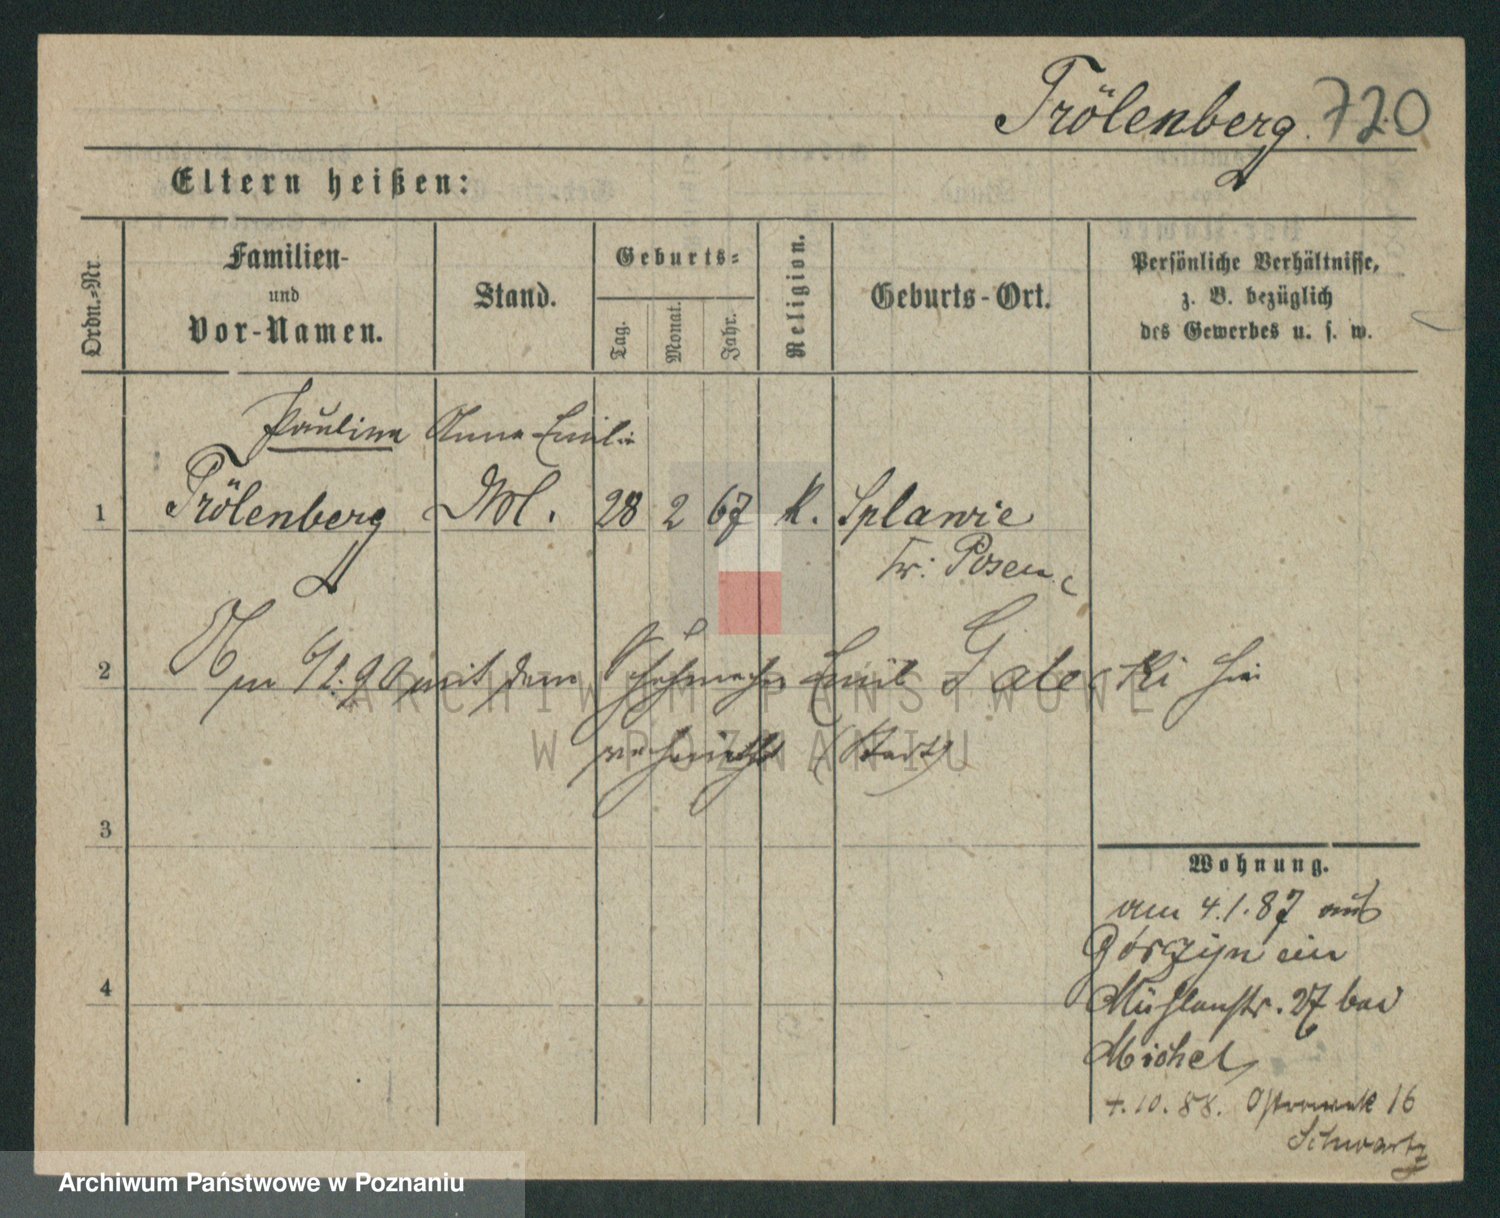 Trölenberg. 720
Eltern heißen:
Ordn.=Nr.
Familien-
und
Vor-Namen.
Stand.
Geburts=
Tag.
Monat.
Jahr.
Religion.
Geburts-Ort.
Persönliche Verhältnisse,
z. B. bezüglich
des Gewerbes u. s. w.
Pauline Anna Emilie
1 Trölenberg 28 2 67 K. Splawie
Kr. Posen
2 Am 6/2.90 mit dem Schuhmacher Emil Galecki hier
verheirathet
3
Wohnung.
am 4.1.87 aus
Górczyn ein
Mühlenstr. 27 bei
Michel
4
4.10.88. Ostrowek 16
Schwartz
ARCHIWUM PAŃSTWOWE
W POZNANIU
Archiwum Państwowe w Poznaniu